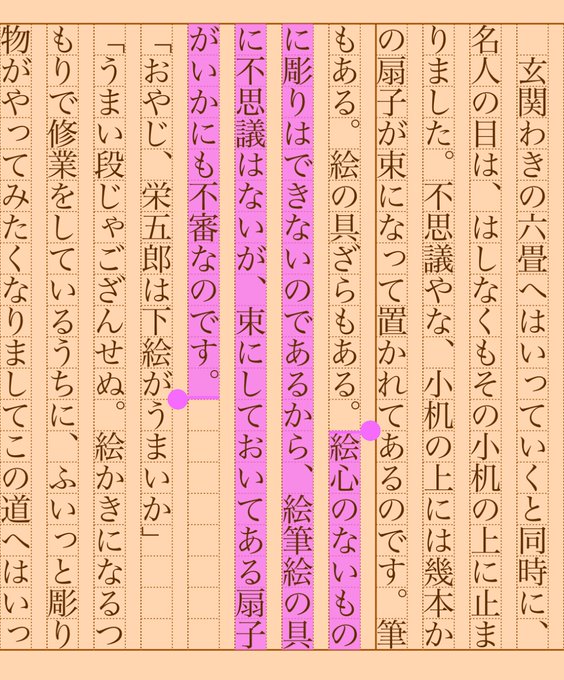 玄関わきの六畳へはいっていくと同時に、
名人の目は、はしなくもその小机の上に止ま
りました。不思議やな、小机の上には幾本か
の扇子が束になって置かれてあるのです。筆
もある。絵の具ざらもある。絵心のないもの
に彫りはできないのであるから、絵筆絵の具
に不思議はないが、束にしておいてある扇子
がいかにも不審なのです。
「おやじ、栄五郎は下絵がうまいか」
「うまい段じゃござんせぬ。絵かきになるつ
もりで修業をしているうちに、ふいっと彫り
物がやってみたくなりましてこの道へはいっ